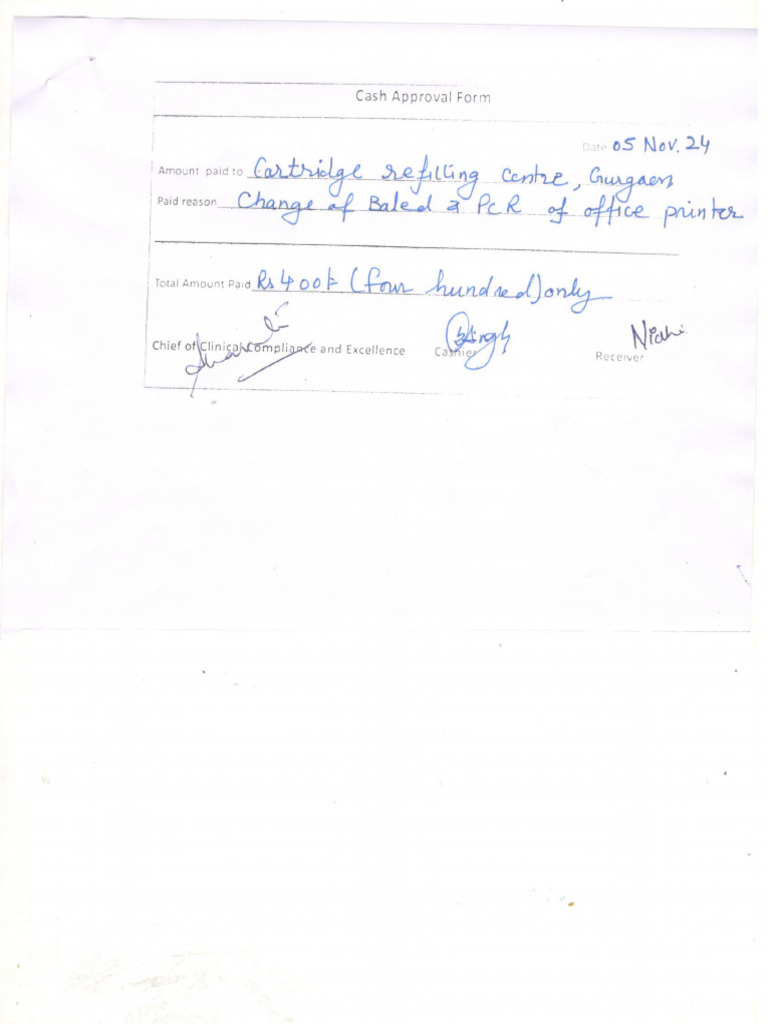 Cash Approval Form
Date 05 Nov. 24
Amount paid to Cartridge refilling Centre, Gurgaon
Paid reason Change of Baled & PCR of office printer
Total Amount Paid Rs 400/= (four hundred) only
Chief of Clinical Compliance and Excellence Cashier Singh Receiver Nidhi